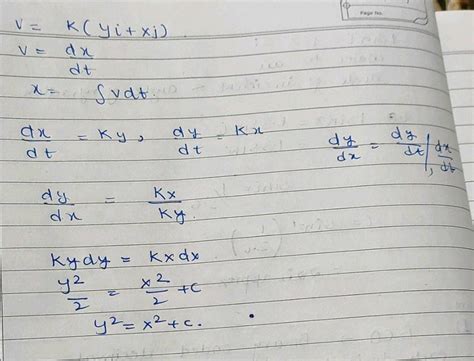 Page No.
v = K(yi + xj)
v = dx/dt
x = ∫vdt
dx/dt = Ky, dy/dt = Kx
dy/dx = dy/dt / dx/dt
dy/dx = Kx/Ky
Kydy = Kxdx
y²/2 = x²/2 + c
y² = x² + c.